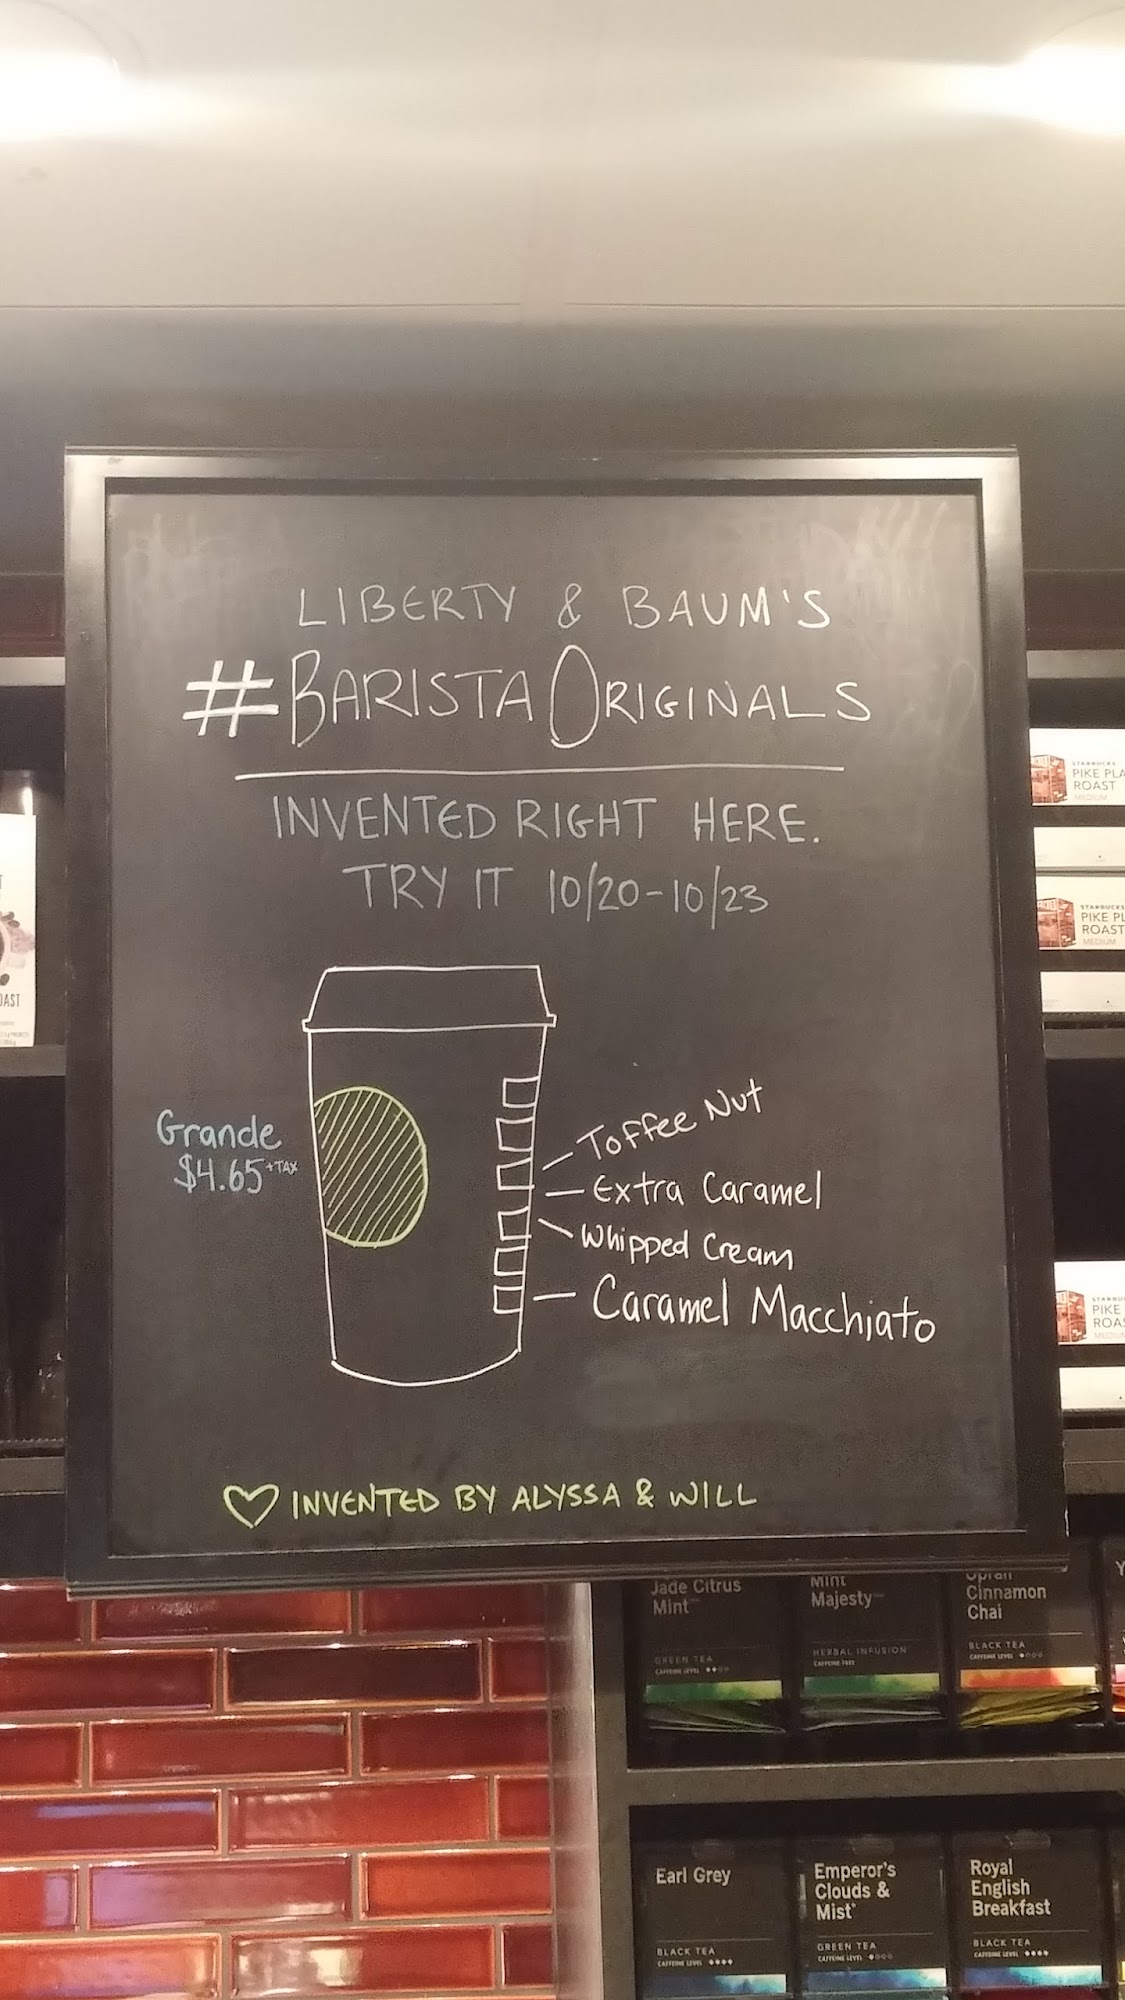 LIBERTY & BAUM'S
#BARISTA ORIGINALS
INVENTED RIGHT HERE.
TRY IT 10/20-10/23
Grande
$4.65 +TAX
Toffee Nut
Extra Caramel
Whipped Cream
Caramel Macchiato
♡ INVENTED BY ALYSSA & WILL
STARBUCKS
PIKE PLA
ROAST
MEDIUM
STARBUCKS
PIKE PL
ROAST
MEDIUM
STARBU
PIKE
ROAS
MEDIUM
OAST
Jade Citrus
Mint
GREEN TEA
CAFFEINE LEVEL
Mint
Majesty
HERBAL INFUSION
CAFFEINE FREE
Oprah
Cinnamon
Chai
BLACK TEA
CAFFEINE LEVEL
Y
Earl Grey
BLACK TEA
CAFFEINE LEVEL
Emperor's
Clouds &
Mist
GREEN TEA
CAFFEINE LEVEL
Royal
English
Breakfast
BLACK TEA
CAFFEINE LEVEL